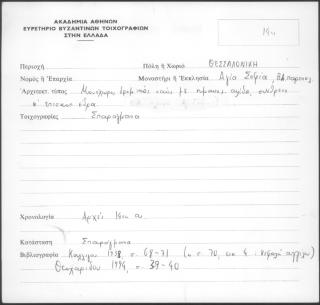 ΑΚΑΔΗΜΙΑ ΑΘΗΝΩΝ
ΕΥΡΕΤΗΡΙΟ ΒΥΖΑΝΤΙΝΩΝ ΤΟΙΧΟΓΡΑΦΙΩΝ
ΣΤΗΝ ΕΛΛΑΔΑ
Περιοχή Πόλη ή Χωριό ΘΕΣΣΑΛΟΝΙΚΗ
Νομός ή Ἐπαρχία Μοναστήρι ή Ἐκκλησία Αγία Σοφία, ΒΔ παρεκκ.
Ἀρχιτεκτ. τύπος Μονόχωρος ναός με αψίδα, σύνθρονο
Τοιχογραφίες Σπαράγματα
Χρονολογία Αρχές 14ου αι.
Κατάσταση Σπαράγματα
Βιβλιογραφία 1938, σ. 68-71 (σ. 70, εικ. 4: κεφαλή αγγέλου)
Θεοχαρίδου 1994, σ. 39-40